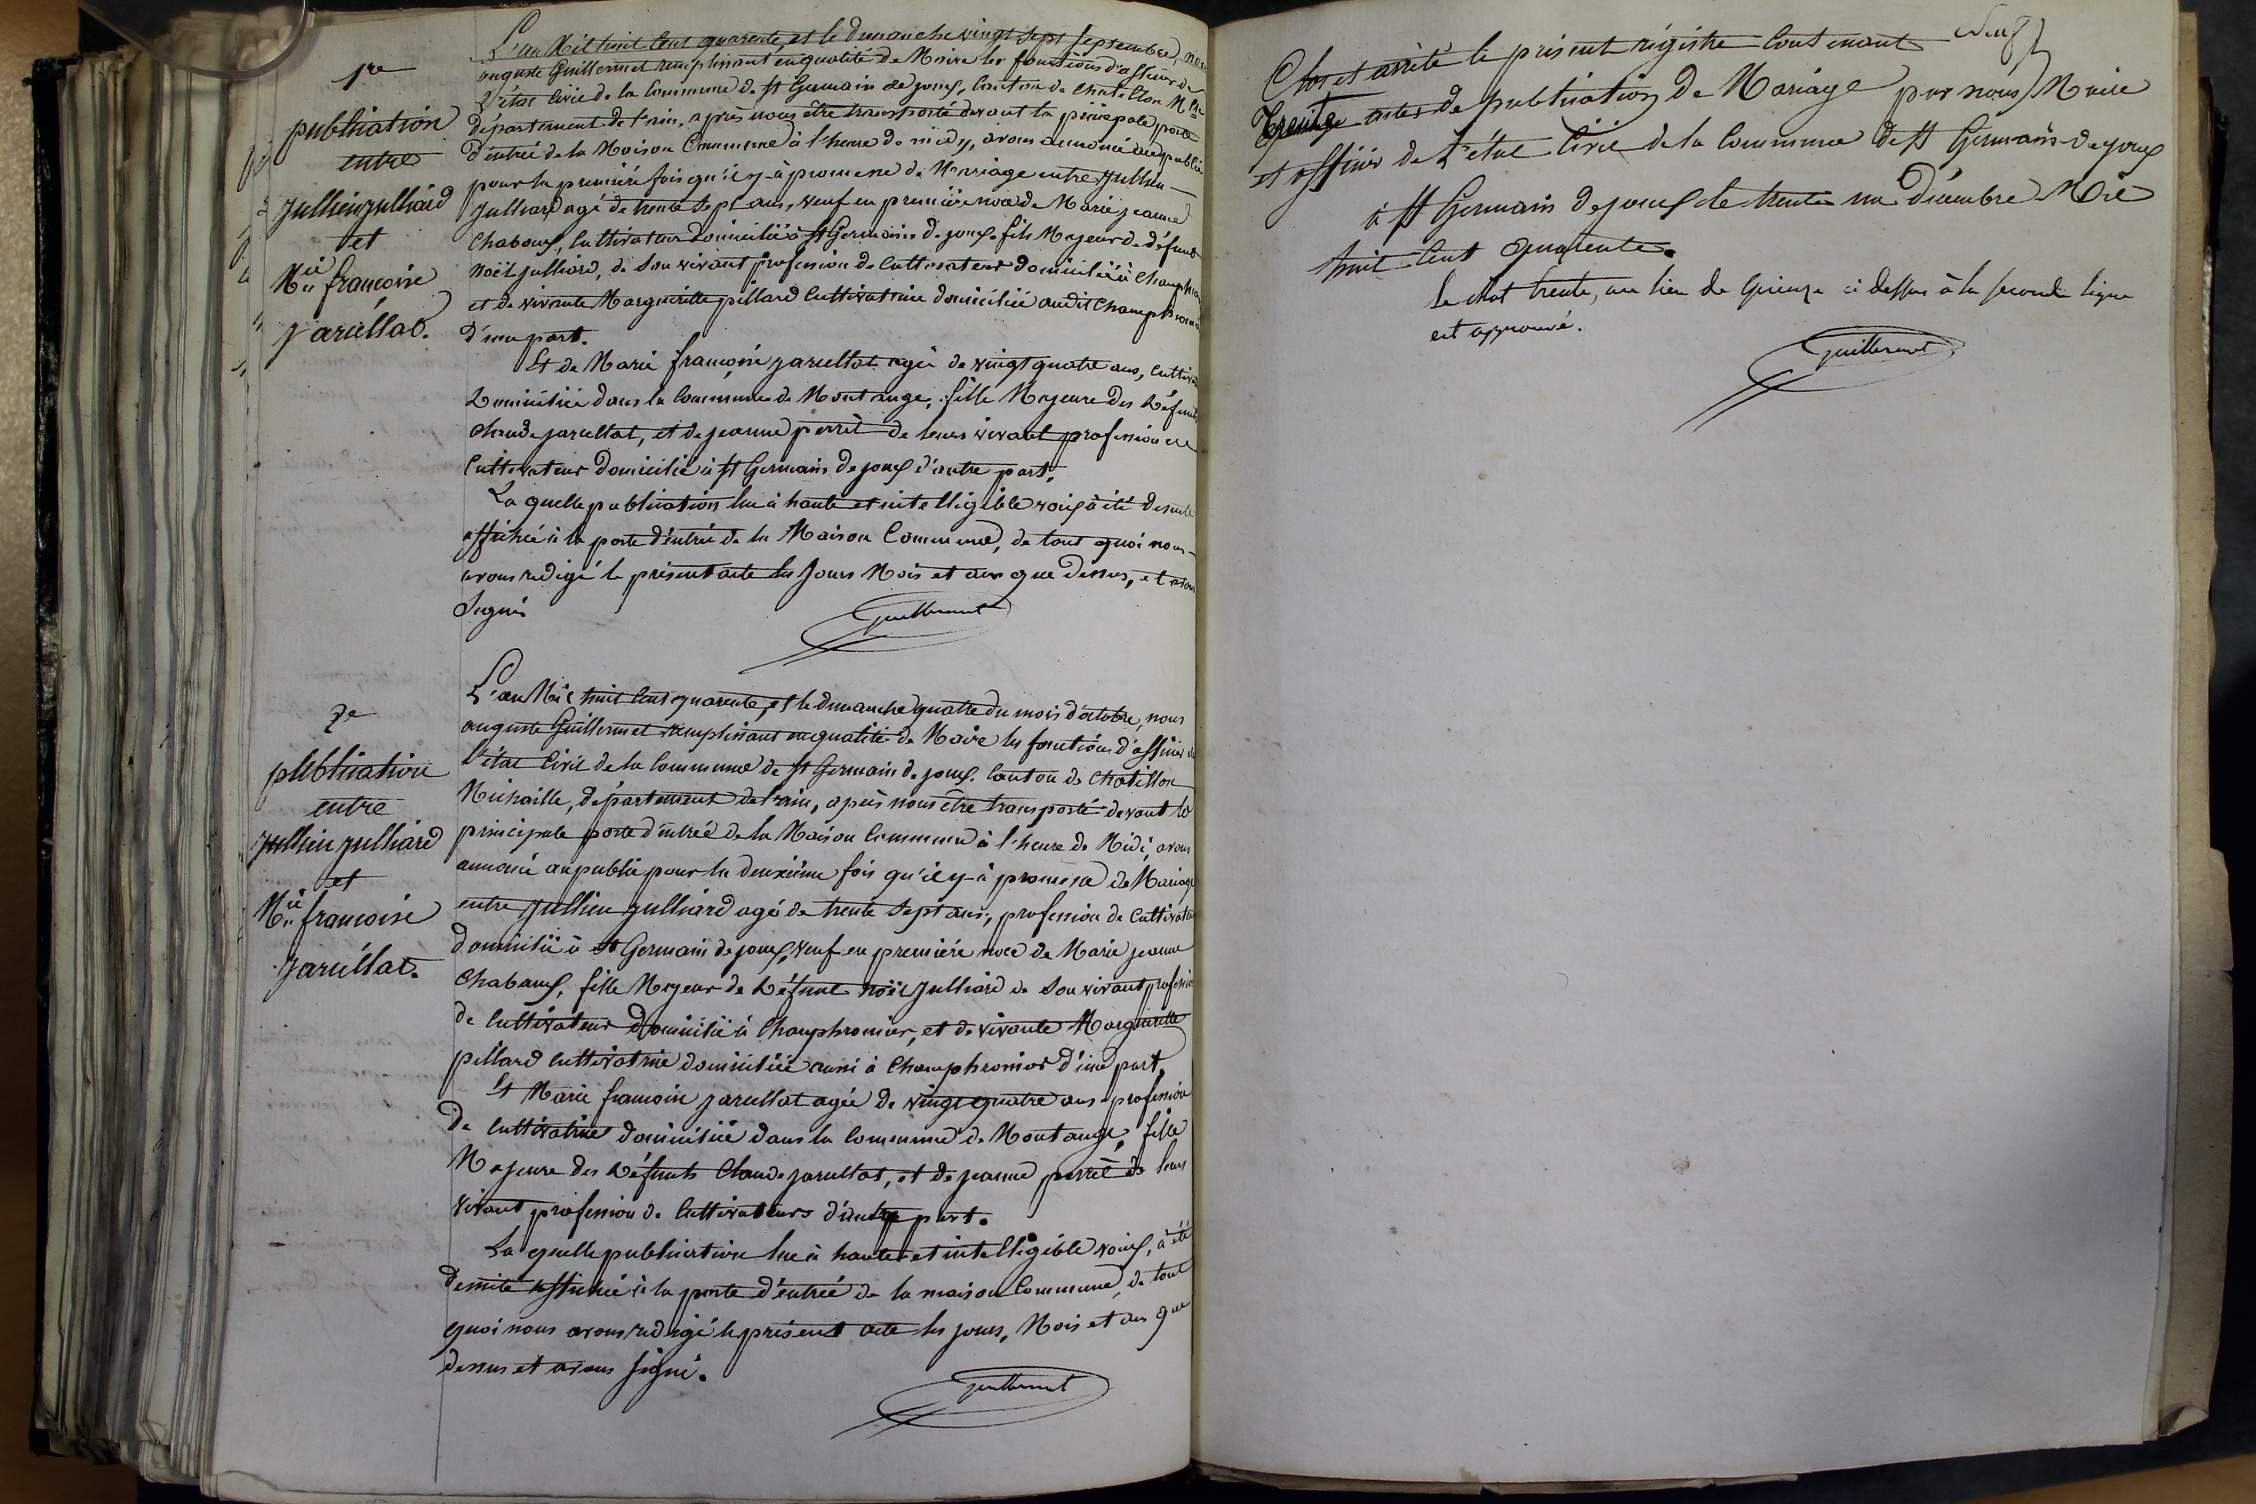 1re
publication
entre
Jullien julliard
et
Mie françoise
jarullat.
L'an Mil huit Cent quarente, et le dimanche vingt sept septembre, nous
auguste Guillermet remplissant en qualité de Maire les fonctions d'officier de
L'état Civil de la Commune de St Germain de joux, Canton de Chatillon
département de l'ain, après nous être transporté devant la principale porte
d'entrée de la Maison Commune à l'heure de midy, avons annoncé au public
pour la première fois qu'il y-à promesse de Mariage entre Jullien
Julliard agé de trente sept ans, veuf en première noce de Marie jeanne
Chaboux, Cultivateur domicilié à St Germain de joux, fils Majeur de défunt
Noël Julliard, de Son vivant profession de Cultivateur domicilié à Champfromier
et de vivante Margueritte pillard Cultivatrice domiciliée audit Champfromier
d'une part.
Et de Marie françoise jarullat agée de vingt quatre ans, Cultivatrice
Domiciliée dans la Commune de Montange, fille Majeure des Défunts
Claude jarullat, et de jeanne perrêt de leurs vivant profession de
Cultivateur domicilié à St Germain de joux d'autre part.
La quelle publication lue à haute et intelligible voix à été de suite
affichée à la porte d'entrée de la Maison Commune, de tout quoi nous
avons redigé le présent acte les Jours Mois et an que dessus, et avons
Signé
Guillermet
2e
publication
entre
Jullien julliard
et
Mie françoise
jarullat.
L'an Mil huit Cent quarente, et le dimanche quatre du mois d'octobre, nous
auguste Guillermet remplissant en qualité de Maire les fonctions d'officier de
l'état Civil de la Commune de St Germain de joux, Canton de Chatillon
Michaille, département de l'ain, après nous être transporté devant la
principale porte d'entrée de la Maison Commune à l'heure de Midi, avons
annoncé au public pour la deuxième fois qu'il y-à promesse de Mariage
entre Jullien julliard agé de trente Sept ans, profession de Cultivateur
domicilié à St Germain de joux, veuf en première noce de Marie jeanne
Chaboux, fille Majeur de Défunt Noël Julliard de Son vivant profession
de Cultivateur domicilié à Champfromier, et de vivante Marguerille
pillard Cultivatrice domiciliée aussi à Champfromier d'une part,
Et Marie françoise jarullat agée de vingt quatre ans profession
De Cultivatrice domiciliée dans la Commune de Montange, fille
Majeure des Défunts Claude jarullat, et de jeanne perrêt de leurs
vivant profession de Cultivateurs d'autre part.
La quelle publication lue à haute et intelligible voix, à été
de suite affichée à la porte d'entrée de la maison Commune, de tout
quoi nous avons redigé le présent acte les jours, Mois et an que
dessus et avons signé.
Guillermet
Clos et arrêté le présent régistre Contenant
Trente actes de publication de Mariage par nous Maire
et officier de L'état Civil de la Commune de St Germain-de joux
à St Germain de joux le trente un Décembre Mil
huit Cent quarente.
le mot trente, au lieu de quinze ci dessus à la seconde ligne
est approuvé.
Guillermet